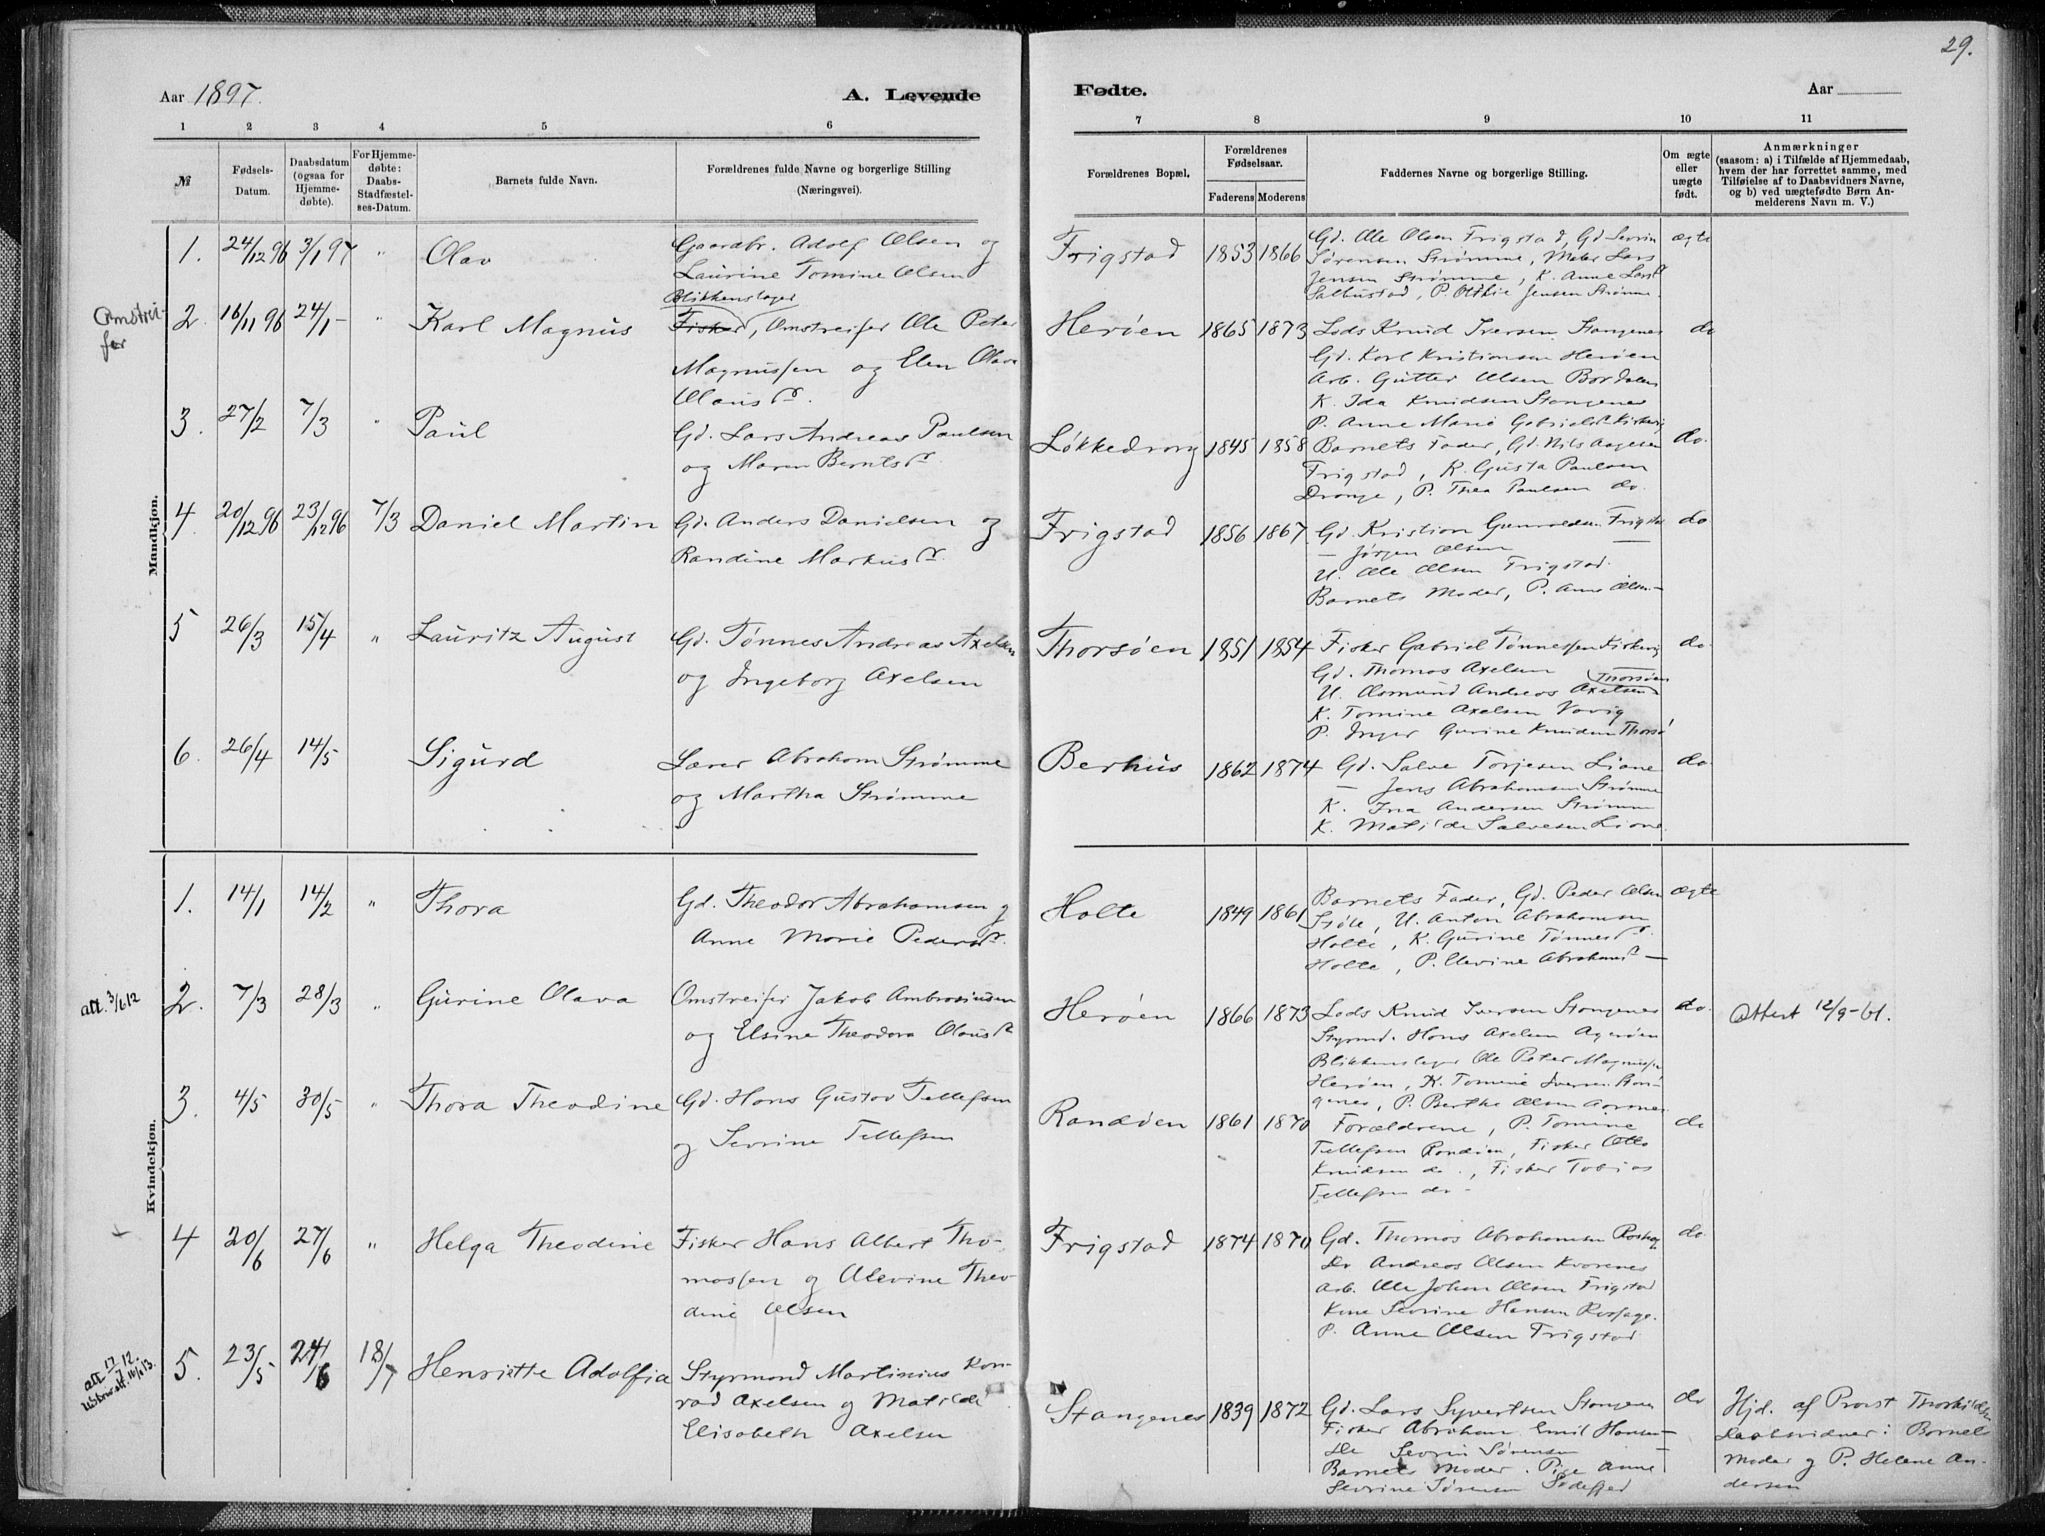 29.
Aar 1897.
A. Levende
Fødte.
Aar
1 2 3 4 5 6
7 8 9 10 11
№
Fødsels-
Datum.
Daabsdatum
(ogsaa for
Hjemme-
døbte).
For Hjemme-
døbte:
Daabs-
Stadfæstel-
ses-Datum.
Barnets fulde Navn.
Forældrenes fulde Navne og borgerlige Stilling
(Næringsvei).
Forældrenes Bopæl.
Forældrenes
Fødselsaar.
Faderens Moderens
Faddernes Navne og borgerlige Stilling.
Om ægte
eller
uægte
født.
Anmærkninger
(saasom: a) i Tilfælde af Hjemmedaab,
hvem der har forrettet samme, med
Tilføielse af to Daabsvidners Navne,
og b) ved uægtefødte Børn An-
melderens Navn m. V.)
Mandkjøn.
1. 24/12 96 3/1 97 " Olav
Gaardbr. Adolf Olsen og
Laurine Tomine Olsen
Frigstad 1853 1866
Gd. Ole Olsen Frigstad, Gd Sevrin
Sørensen Strømme, Lars
Jensen Strømme, K. Anne
P. Jensen Strømme.
ægte
Omstrei-
fer
2. 16/11 96 24/1 - " Karl Magnus
Blikkenslager
Fisker, Omstreifer Ole Peter
Magnussen og Elen Olava
Olausdr.
Herøen 1865 1873
Lods Knud Iversen Stangenes
Gd. Karl Kristiansen Herøen
Arb. Olsen
K. Ida Knudsen Stangenes
P. Anne Marie
do
3. 27/2 7/3 " Paul
Gd. Lars Andreas Paulsen
og Maren Berntsdr.
Løkkedrong 1845 1858
Barnets Fader, Gd. Nils Aagesen
Frigstad, K. Gusta Paulsen
Drange, P. Thea Paulsen do.
do.
4. 20/12 96 23/12 96 7/3 Daniel Martin
Gd. Anders Danielsen og
Randine Markusdr.
Frigstad 1856 1867
Gd. Kristian Gunvaldsen Frigstad
— Jørgen Olsen —
U. Ole Olsen Frigstad.
Barnets Moder, P. Anne Olsen —
do
5 26/3 15/4 " Lauritz August
Gd. Tønnes Andreas Axelsen
og Ingeborg Axelsen
Thorsøen 1851 1854
Fisker Gabriel Tønnessen
Gd. Thomas Axelsen Thorsøen
U. Osmund Andreas Axelsen
K. Tomine Axelsen
P. Inger Gurine Knudsen Thorsø
do.
6. 26/4 14/5 Sigurd
Lærer Abraham Strømme
og Martha Strømme
Berhus 1862 1874
Gd. Salve Torjesen Liane
— Jens Abrahamsen Strømme
K. Ina Andersen Strømme
K. Matilde Salvesen Liane.
do.
Kvindekjøn.
1. 14/1 14/2 " Thora
Gd. Theodor Abrahamsen og
Anne Marie Pedersdr.
Holte 1849 1861
Barnets Fader, Gd. Peder Olsen
U. Anton Abrahamsen
Holte, K. Gurine Tønnesdr.
Holte, P. Abrahamsdr —
ægte
att. 3/6 12
2. 7/3 28/3 " Gurine Olava
Omstreifer Jakob Ambrosiusen
og Elsine Theodora Olausdr
Herøen 1866 1873
Lods Knud Iversen Stangenes
Styrmd. Hans Axelsen Agerøen
Blikkenslager Ole Peter Magnussen
Herøen, K. Tomine Iversen Stan-
genes, P. Berthe Olsen
do.
Attest 12/9-61.
3. 4/5 30/5 " Thora Theodine
Gd. Hans Gustav Tellefsen
og Sevrine Tellefsen
Randøen 1861 1870
Forældrene, P. Tomine
Tellefsen Randøen, Fisker Otto
Knudsen do., Fisker Tobias
Tellefsen do -
do
4 20/6 27/6 " Helga Theodine
Fisker Hans Albert Tho-
massen og Olevine Theo-
dine Olsen
Frigstad 1874 1870
Gd. Thomas Abrahamsen
Do Andreas Olsen Kvarenes
Arb. Ole Johan Olsen Frigstad
Kone Sevrine Hansen
P. Anne Olsen Frigstad
do.
att 17/7 12.
5. 23/5 24/6 18/7 Henriette Adolfia
Styrmand Martinius Kon-
rad Axelsen og Matilde
Elisabeth Axelsen
Stangenes 1839 1872
Gd. Lars Syvertsen Stangenes
Fisker Abraham Emil Hansen —
Do Sevrin Sørensen —
Barnets Moder. Pige Anne
Sevrine Sørensen
do
Hjd. af Provst
Daabsvidner: Barnets
Moder og P. Helene An-
dersen